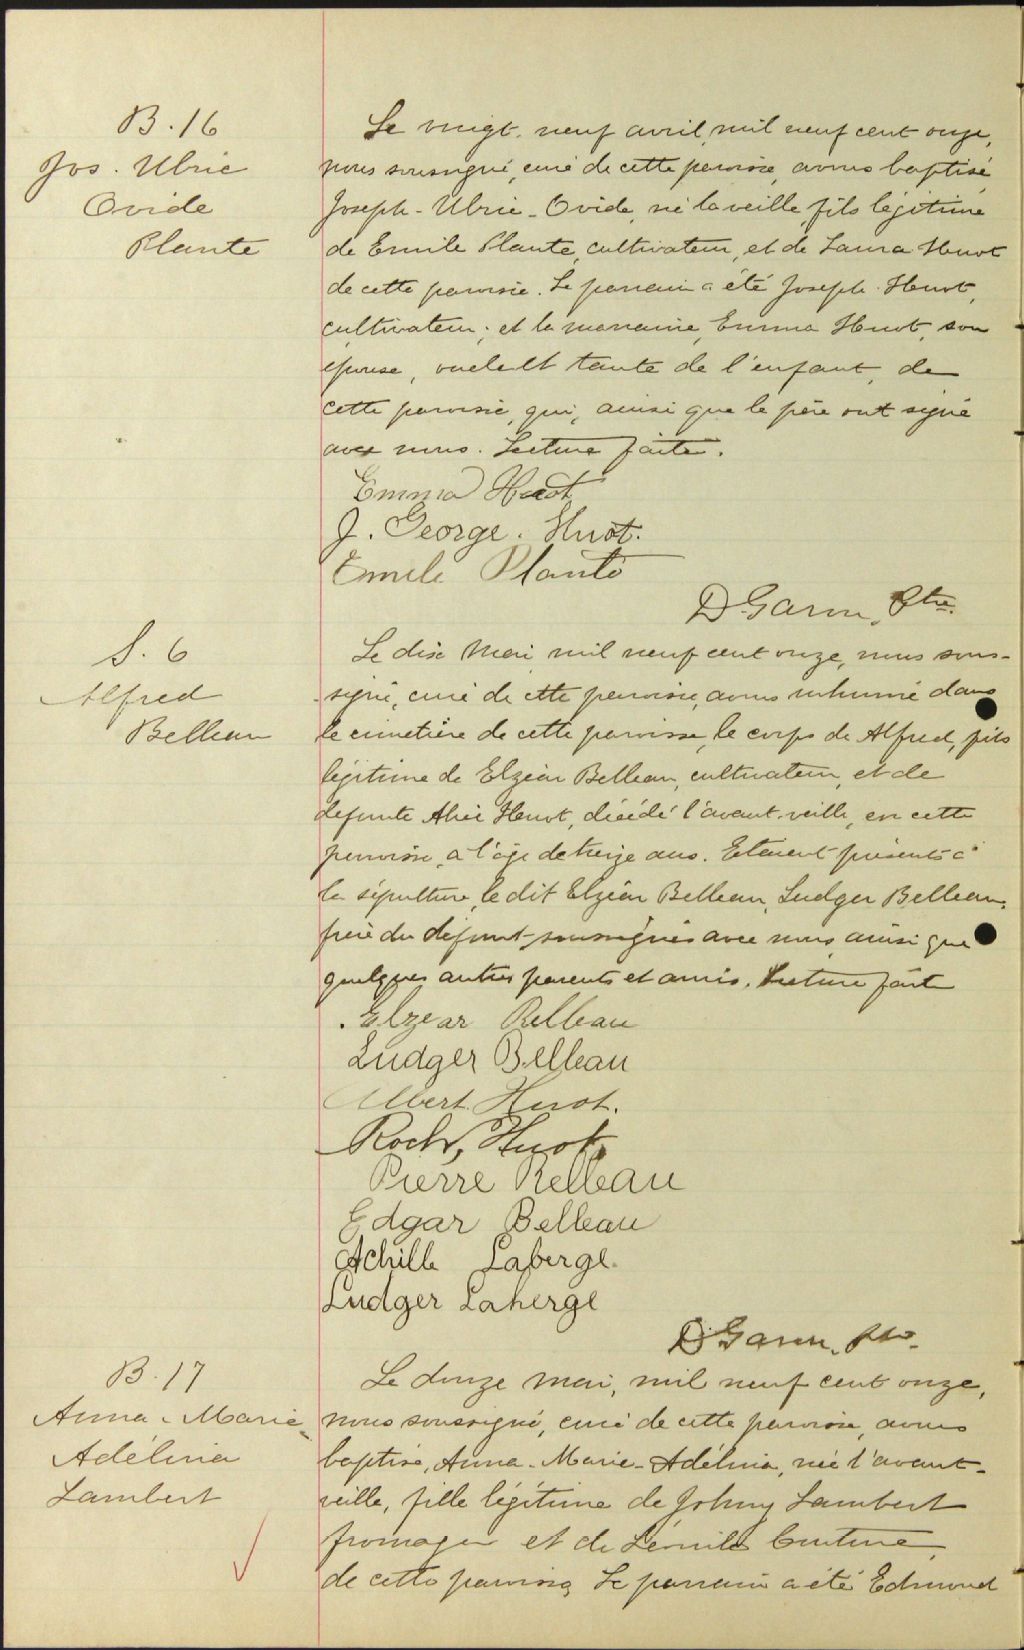 B. 16
Jos. Ulric
Ovide
Plante
Le vingt-neuf avril, mil neuf cent onze,
nous soussigné, curé de cette paroisse, avons baptisé
Joseph-Ulric-Ovide, né la veille, fils légitime
de Emile Plante, cultivateur, et de Laura Huot
de cette paroisse. Le parrain a été Joseph Huot,
cultivateur; et la marraine, Emma Huot, son
épouse, oncle et tante de l'enfant, de
cette paroisse, qui, ainsi que le père ont signé
avec nous. Lecture faite.
Emma Huot
J. George. Huot.
Emile Plante
D Garon, Ptre.
S. 6
Alfred
Belleau
Le dix Mai mil neuf cent onze, nous sous-
signé, curé de cette paroisse, avons inhumé dans
le cimetière de cette paroisse, le corps de Alfred, fils
légitime de Elzéar Belleau, cultivateur, et de
defunte Huot, décédé l'avant-veille, en cette
paroisse, a l'âge de treize ans. Etaient présents à
la sépulture, le dit Elzéar Belleau, Ludger Belleau,
frère du défunt soussignés avec nous, ainsi que
quelques autres parents et amis. Lecture faite
Elzear Belleau
Ludger Belleau
Albert Huot.
Roch, Huot.
Pierre Belleau
Edgar Belleau
Achille Laberge.
Ludger Laberge
D Garon, Ptre.
B. 17
Anna-Marie
Adélina
Lambert
Le douze Mai, mil neuf cent onze,
nous soussigné, curé de cette paroisse, avons
baptisé, Anna-Marie-Adélina, née l'avant-
veille, fille légitime de Johny Lambert
fromager et de
de cette paroisse, Le parrain a été Edmond